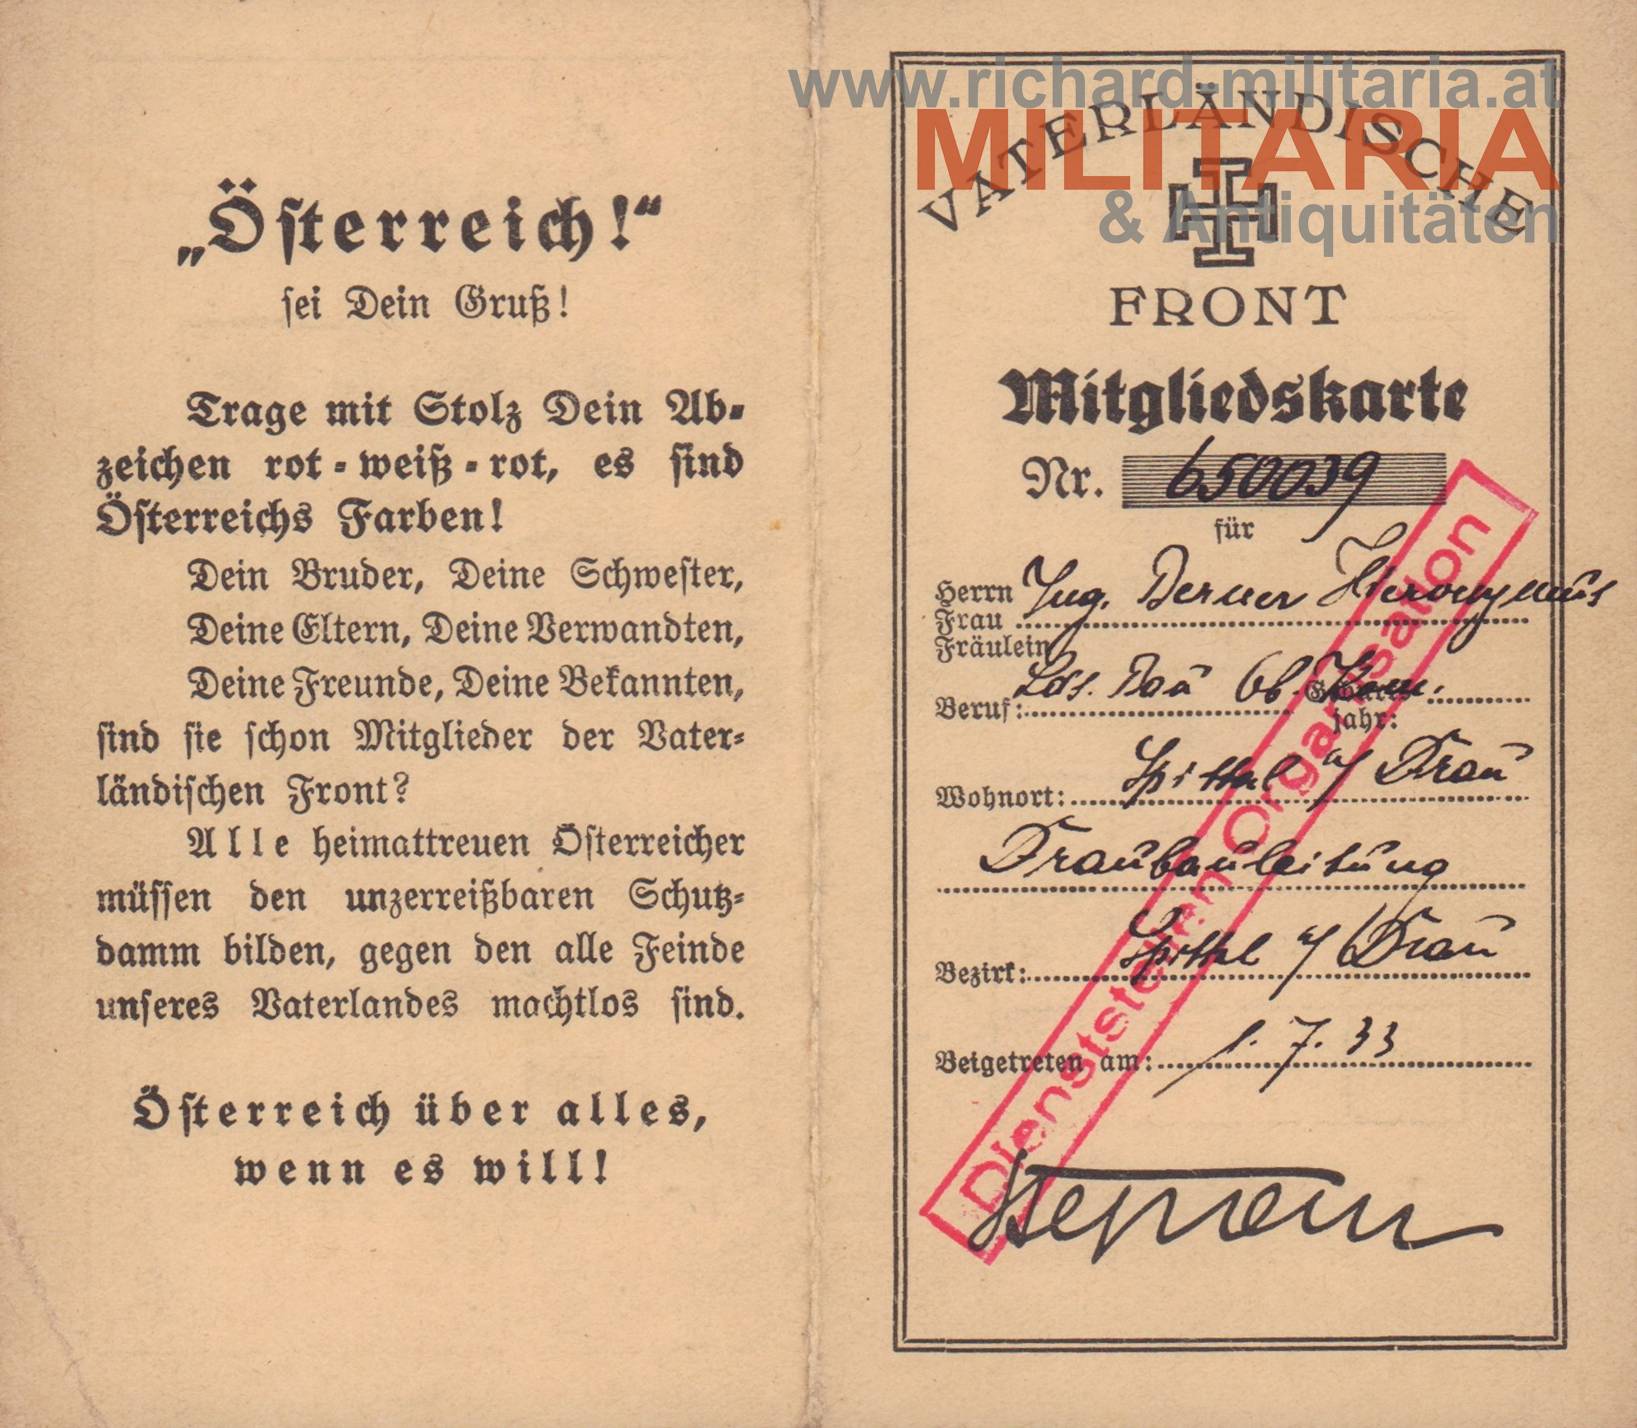 „Österreich!“
sei Dein Gruß!
Trage mit Stolz Dein Ab-
zeichen rot-weiß-rot, es sind
Österreichs Farben!
Dein Bruder, Deine Schwester,
Deine Eltern, Deine Verwandten,
Deine Freunde, Deine Bekannten,
sind sie schon Mitglieder der Vater-
ländischen Front?
Alle heimattreuen Österreicher
müssen den unzerreißbaren Schutz-
damm bilden, gegen den alle Feinde
unseres Vaterlandes machtlos sind.
Österreich über alles,
wenn es will!
www.richard-militaria.at
MILITARIA
& Antiquitäten
VATERLÄNDISCHE
FRONT
Mitgliedskarte
Nr. 650039
für
Herrn
Frau
Fräulein
Ing. Berner Hieronymus
Beruf: Bau Ob. Kom.
jahr:
Wohnort: Spittal a/ Drau
Draubauleitung
Bezirk: Spittal a/ Drau
Beigetreten am: 1. 7. 33
Dienststellen Organisation